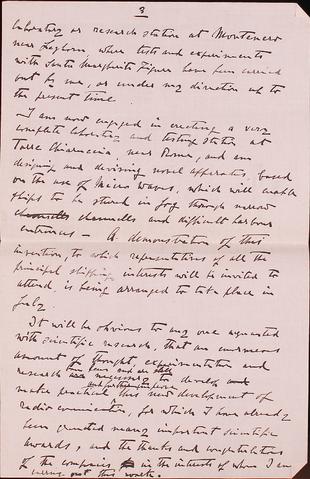 3
laboratory or research station at Montenero
near Leghorn, where tests and experiments
with Santa Margherita Ligure have been carried
out by me, or under my direction up to
the present time.
I am now engaged in erecting a very
complete laboratory and testing station at
Torre Chiaruccia, near Rome, and am
designing and devising novel apparatus, based
on the use of Micro Waves, which will enable
ships to be steered in fog through narrow
channells channells and difficult harbour
entrances — A demonstration of this
invention, to which representatives of all the
principal shipping interests will be invited to
attend, is being arranged to take place in
July.
It will be obvious to any one aquainted
with scientific research, that an enormous
amount of thought, experimentation and
research has been and are still necessary to develop and
and further improve
make practical this new development of
radio communication, for which I have already
been granted many important scientific
awards, and the thanks and congratulations
of the companies in the interests of whom I am
carrying out this work.